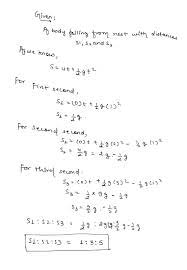 Given:
A body falling from rest with distances
S1, S2 and S3
As we know,
S = ut + ½gt²
For First second,
S1 = (0)t + ½g(1)²
S1 = ½g
For second second,
S2 = (0)t + ½g(2)² - ½g(1)²
S2 = 4/2 g - ½g
For third second:
S3 = (0)t + ½g(3)² - ½g(2)²
S3 = ½
S3 = 9/2 g -
S1 : S2 : S3 = ½g :
S1 : S2 : S3 = 1 : 3 : 5